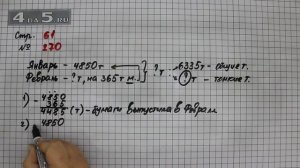 4 ПО 5.RU
Стр. 61
№ 270
Январь - 4850 т
Февраль - ? т, на 365 т м.
? т
6335т - общие т.
? т - тонкие т.
1) - 4850
365
4485 (т) - бумаги выпустила в Феврал
2) 4850